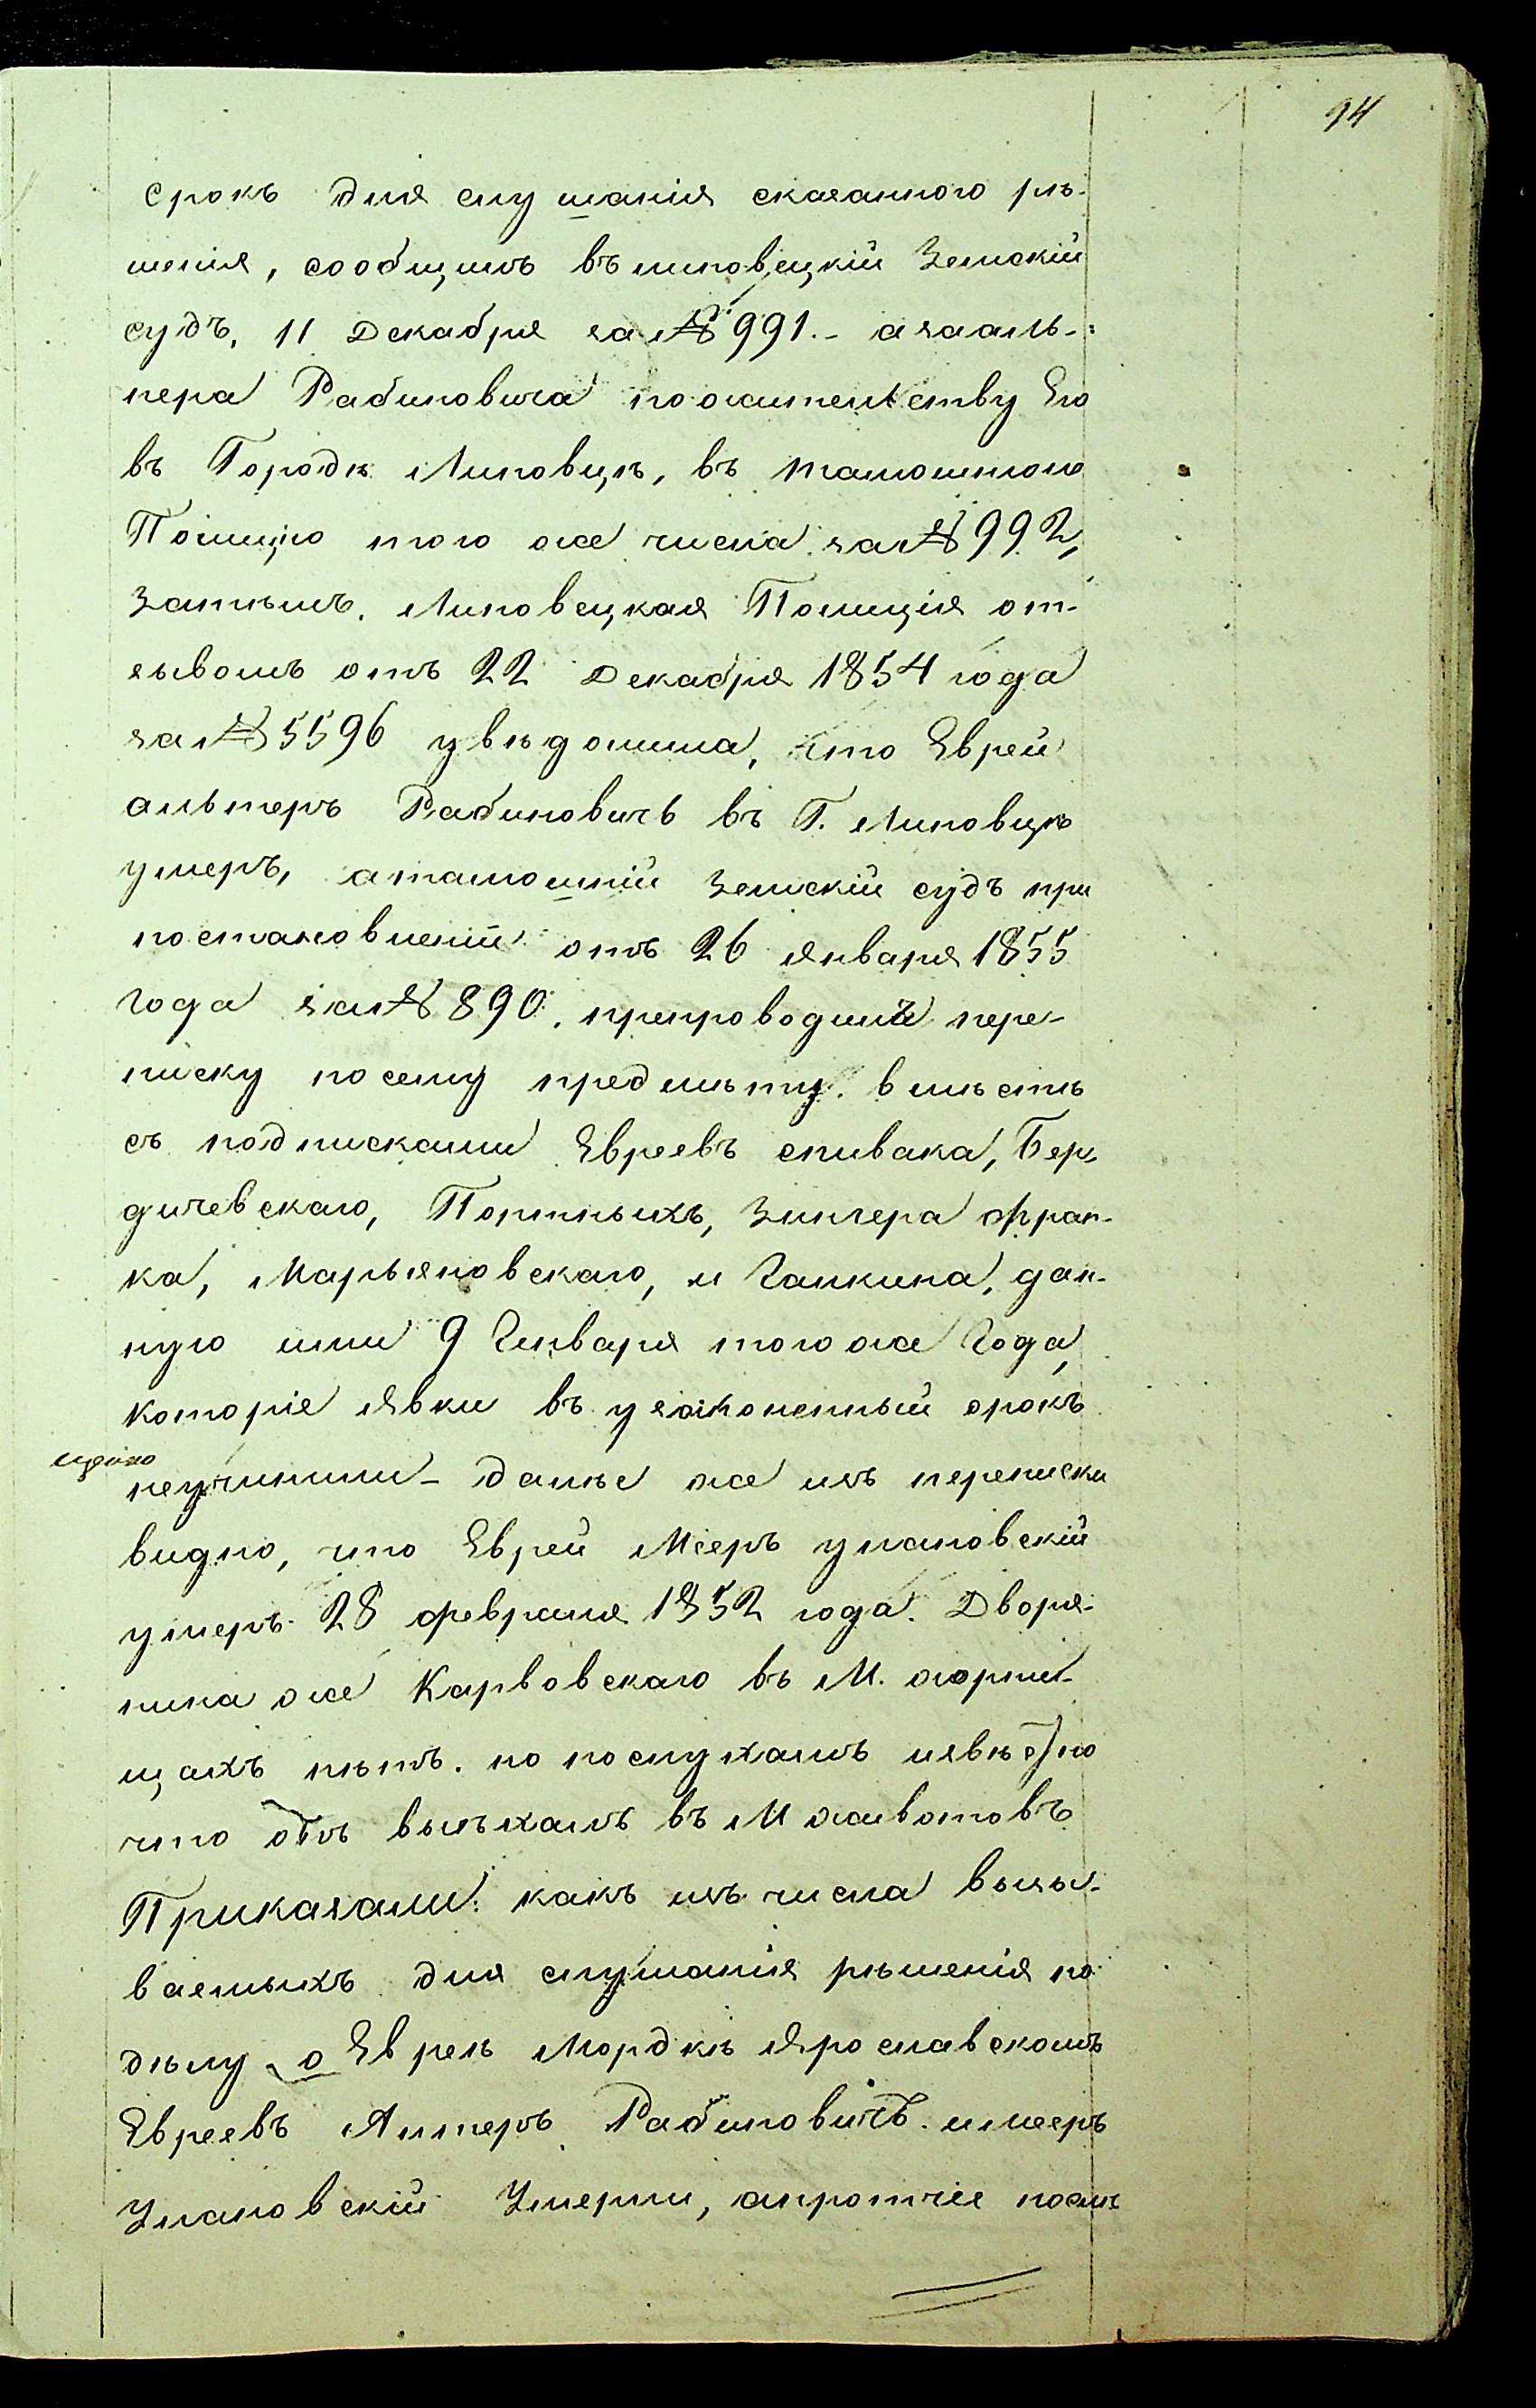 94
срокъ для слушанія сказаннаго рѣ-
шенія, сообщилъ въ Липовецкій Земскій
судъ, 11 Декабря за № 991. - а за Аль-
тера Рабиновича по жительству Его
въ Городѣ Липовцѣ, въ тамошнюю
Полицію того же числа за № 992,
Затѣмъ. Липовецкая Полиція от-
зывомъ отъ 22 Декабря 1854 года
за № 5596 увѣдомила, что Еврей
альтеръ Рабиновичъ въ Г. Липовцѣ
умеръ, а тамошній Земскій судъ при
постановленіи отъ 26 Января 1855
года за № 890. препроводилъ пере-
писку по сему предмѣту. вмѣстѣ
съ подписками Евреевъ спивака, Бер-
дичевскаго, Портныхъ, Зингера фран-
ка, Марьяновскаго, и Галкина, дан-
ную ими 9 Генваря того же Года,
Которіе явки въ узаконенный срокъ
неучинили - далѣе же изъ переписки
видно, что Еврей Мееръ улановскій
умеръ 28 февраля 1852 года. Дворя-
нина же Карвовскаго въ М. жорни-
щахъ нѣтъ. но по слухамъ извѣстно
что онъ выѣхалъ въ М животовъ
Приказали: какъ изъ числа вызы-
ваемыхъ для слушанія рѣшенія по
дѣлу о Евреѣ Мордкѣ Ярославскомъ
Евреевъ Алтеръ Рабиновичъ. имееръ
Улановскій Умерли, апротчіе